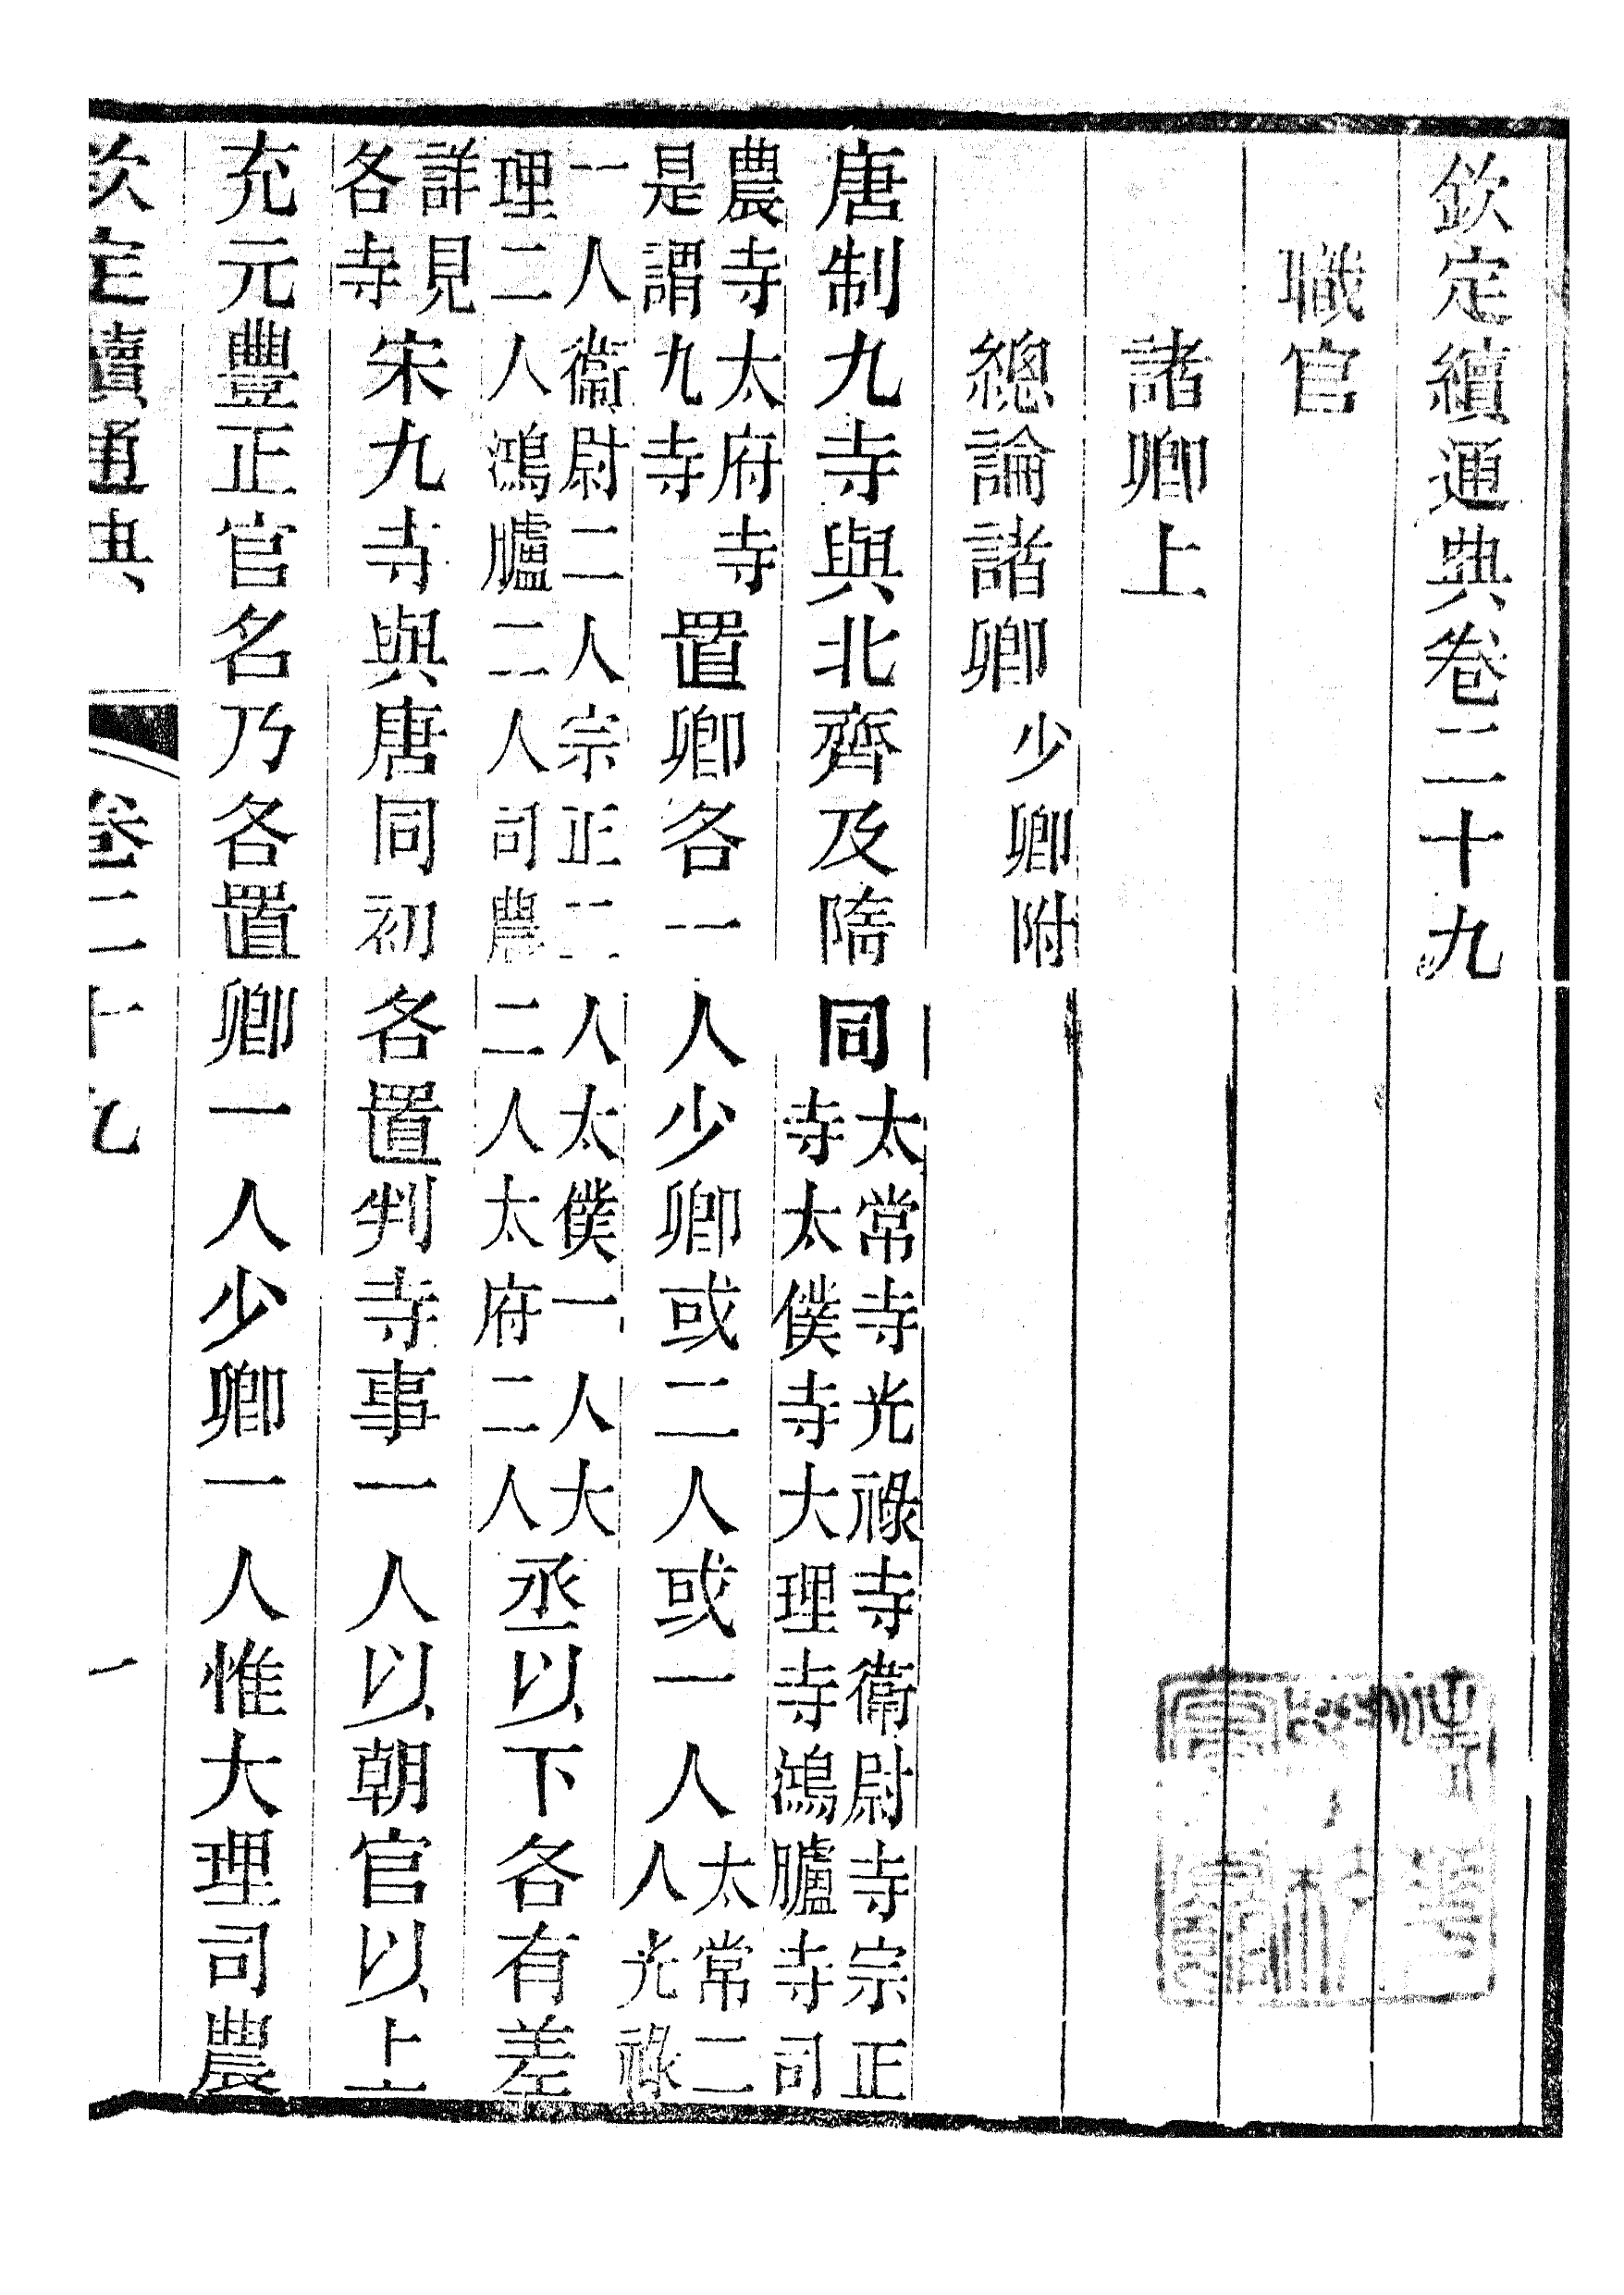 欽定續通典卷二十九
職官
諸卿上
總論諸卿少卿附
唐制九寺與北齊及隋同太常寺光祿寺衞尉寺宗正寺太僕寺大理寺鴻臚寺司
農寺太府寺是謂九寺置卿各一人少卿或二人或一人太常二人光祿
一人衞尉二人宗正二人太僕一人大理二人鴻臚二人司農二人太府二人丞以下各有差
詳見各寺宋九寺與唐同初各置判寺事一人以朝官以上
充元豐正官名乃各置卿一人少卿一人惟大理司農
欽定續通典 卷二十九 一